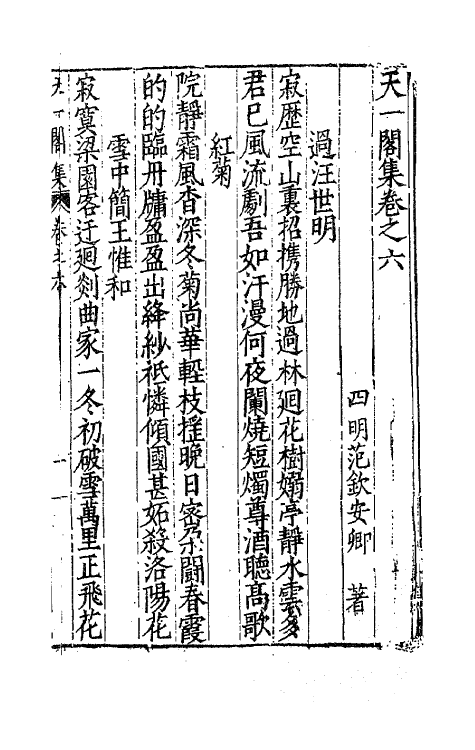 天一閣集卷之六
四明范欽安卿　著
過汪世明
寂歷空山裏招携勝地過林廻花樹嫋亭靜水雲多
君已風流劇吾如汗漫何夜闌燒短燭尊酒聽高歌
紅菊
院靜霜風杳深冬菊尚華輕枝摇晚日密朶鬪春霞
的的臨丹牖盈盈出絳紗祇憐傾國甚妬殺洛陽花
雪中簡王惟和
寂寞梁園客迂廻剡曲家一冬初破雪萬里正飛花
天一閣集 卷之六 一